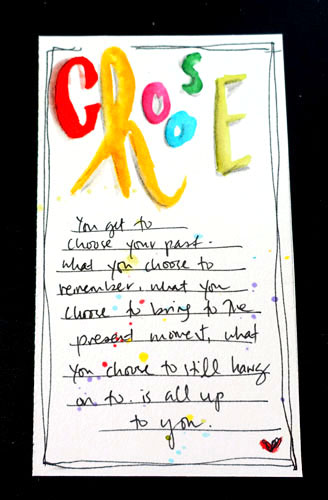 ChooSE
You get to
choose your past.
what you choose to
remember, what you
choose to bring to the
present moment, what
you choose to still hang
on to is all up
to you.